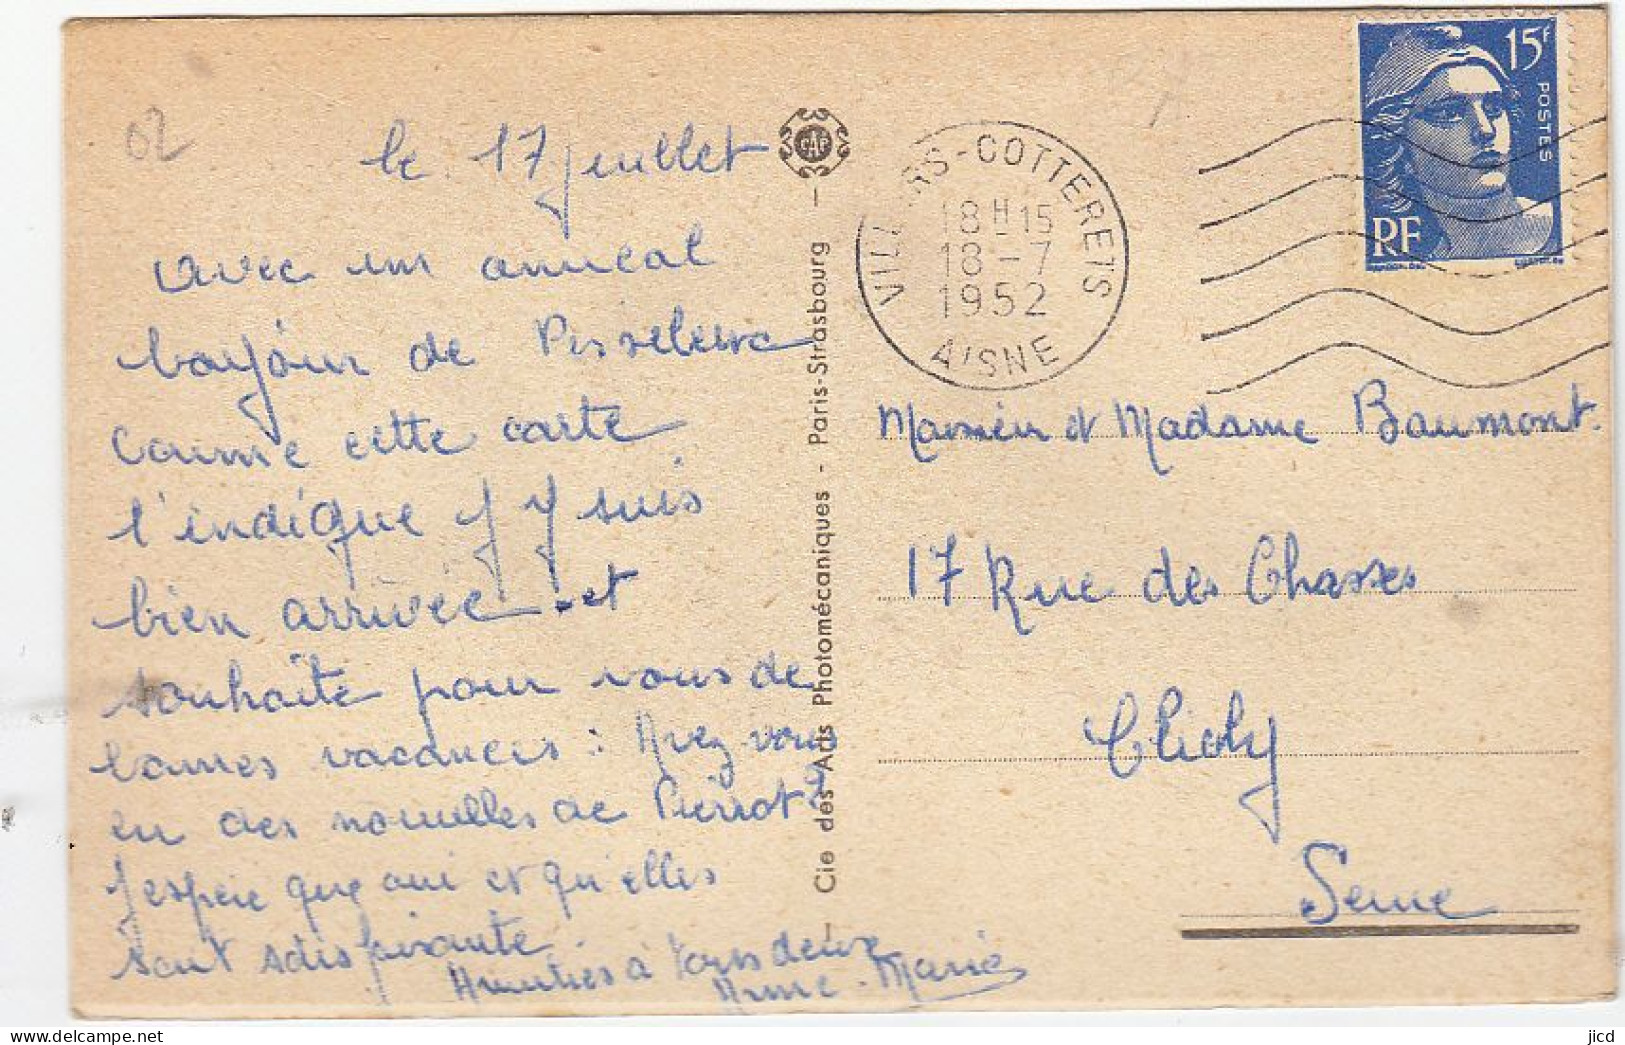 02
le 17 juillet
avec un amical
bonjour de Pisseleux
comme cette carte
l'indique j'y suis
bien arrivée et
souhaite pour vous de
bonnes vacances : Avez vous
eu des nouvelles de Pierrot ?
j'espère que oui et qu'elles
sont satisfaisante.
Amitiés à tous deux
Anne-Marie
Cie des Arts Photomécaniques - Paris-Strasbourg -
CAP
VILL RS-COTTERETS
18H15
18-7
1952
AISNE
15F
POSTES
RF
Monsieur et Madame Baumont.
17 Rue des Chasses
Clichy
Seine
jicd